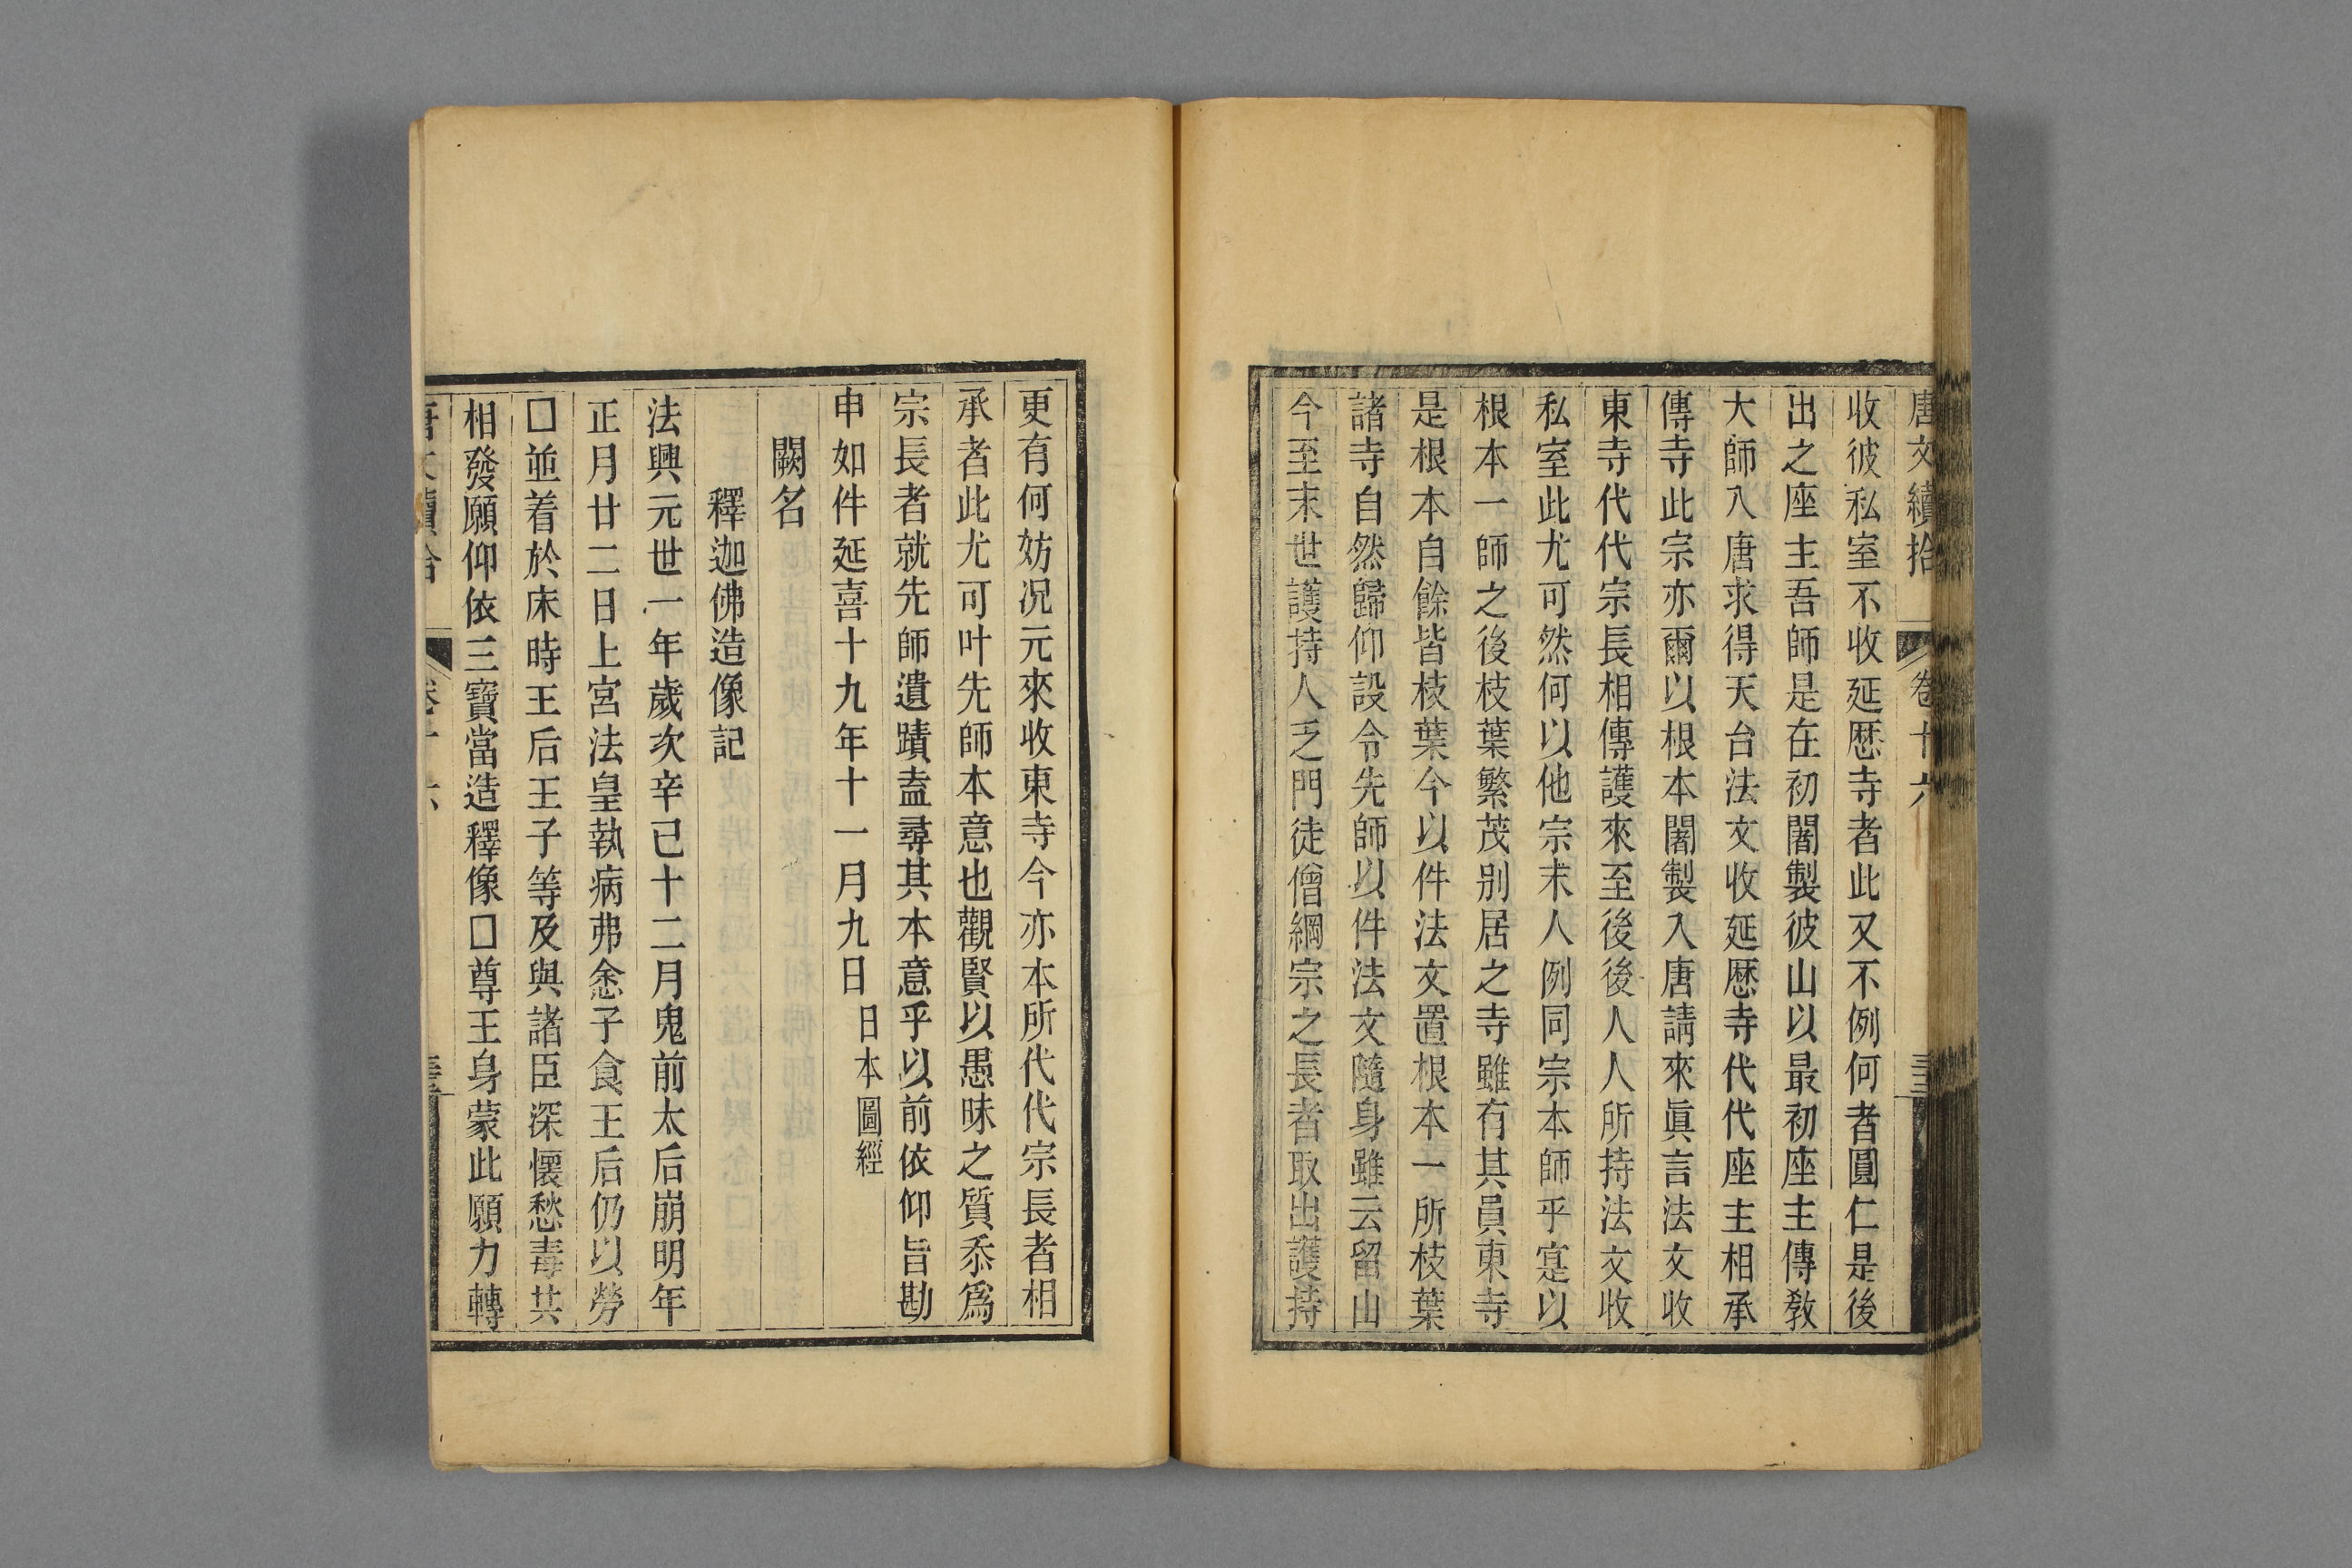 唐文續拾 卷十六
收彼私室不收延歷寺者此又不例何者圓仁是後
出之座主吾師是在初闍製彼山以最初座主傳敎
大師入唐求得天台法文收延歷寺代代座主相承
傳寺此宗亦爾以根本闍製入唐請來眞言法文收
東寺代代宗長相傳護來至後後人人所持法文收
私室此尤可然何以他宗末人例同宗本師乎寔以
根本一師之後枝葉繁茂別居之寺雖有其員東寺
是根本自餘皆枝葉今以件法文置根本一所枝葉
諸寺自然歸仰設令先師以件法文隨身雖云留山
今至末世護持人乏門徒僧綱宗之長者取出護持
更有何妨況元來收東寺今亦本所代代宗長者相
承者此尤可叶先師本意也觀賢以愚昧之質忝爲
宗長者就先師遺蹟盍尋其本意乎以前依仰旨勘
申如件延喜十九年十一月九日 日本圖經
闕名
釋迦佛造像記
法興元世一年歲次辛巳十二月鬼前太后崩明年
正月廿二日上宮法皇執病弗悆子食王后仍以勞
□並着於床時王后王子等及與諸臣深懷愁毒共
相發願仰依三寶當造釋像□尊王身蒙此願力轉